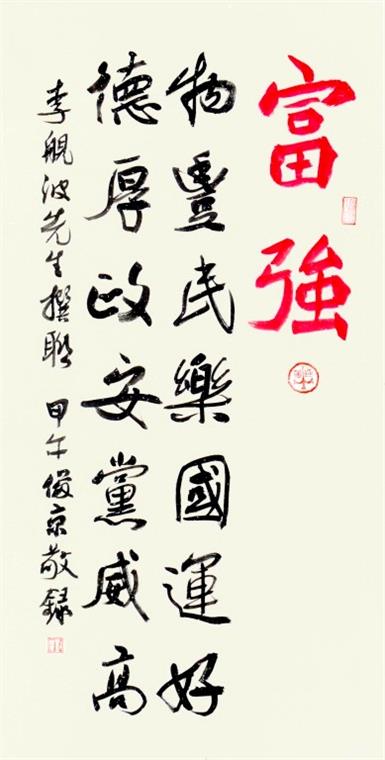 富強
物豐民樂國運好
德厚政安黨威高
李舰波先生撰聯 甲午俊京敬錄